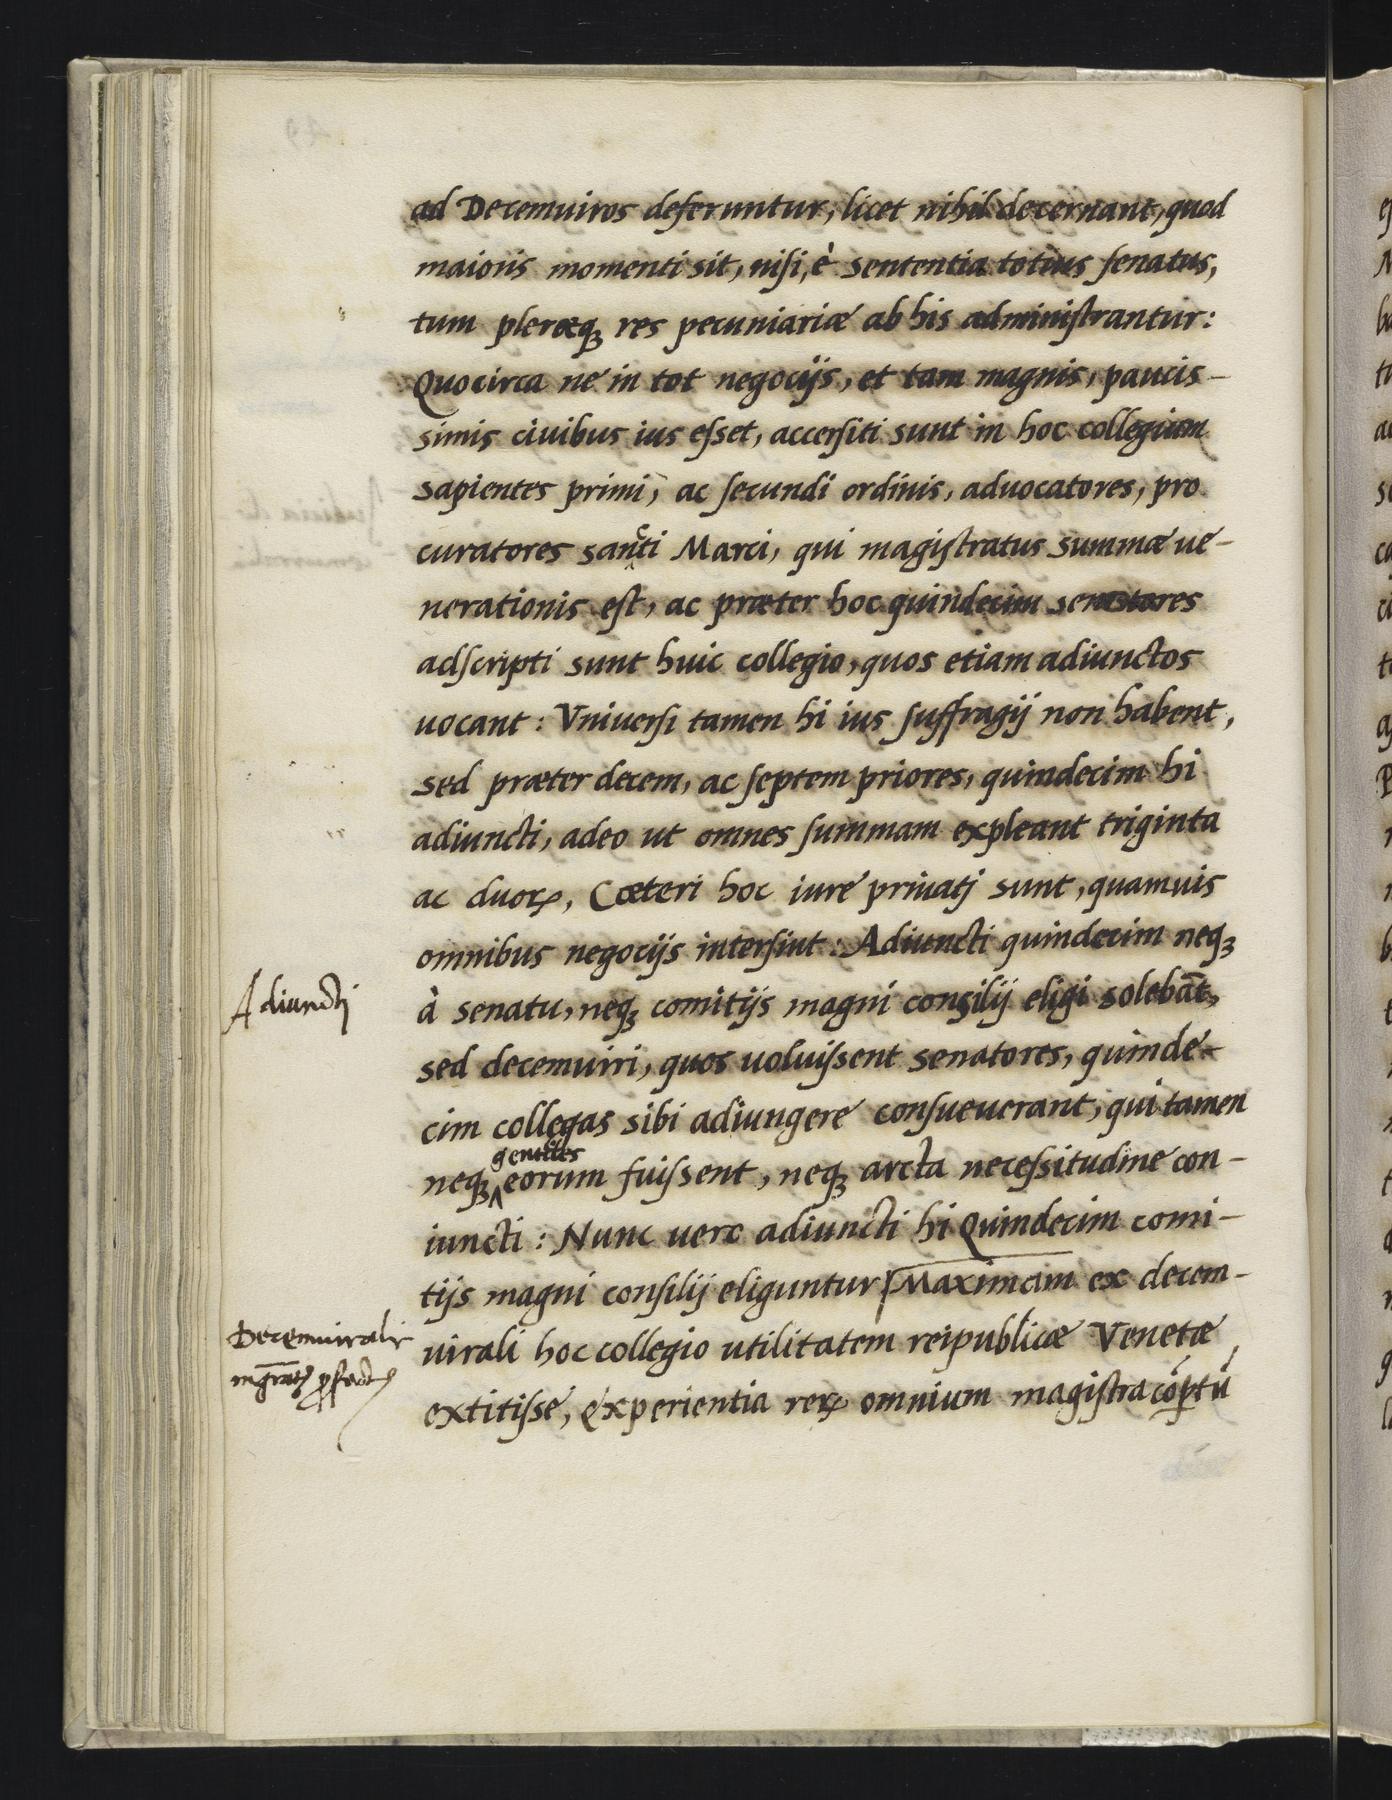 ad Decemuiros deferuntur, licet nihil decernant, quod
maioris momenti sit, nisi, è sententia totius senatus,
tum pleræqꝫ res pecuniariæ ab his administrantur:
Quocirca ne in tot negocijs, et tam magnis, paucis-
simis ciuibus ius esset, accersiti sunt in hoc collegium
sapientes primi, ac secundi ordinis, aduocatores, pro
curatores sancti Marci, qui magistratus summæ ue-
nerationis est, ac præter hoc quindecim senatores
adscripti sunt huic collegio, quos etiam adiunctos
uocant: Vniuersi tamen hi ius suffragij non habent,
sed præter decem, ac septem priores, quindecim hi
adiuncti, adeo ut omnes summam expleant triginta
ac duoꝝ, Cæteri hoc iure priuatj sunt, quamuis
omnibus negocijs intersint: Adiuncti quindecim neqꝫ
Adiunctj
à senatu, neqꝫ comitijs magni consilij eligi solebāt,
sed decemuiri, quos uoluissent senatores, quinde-
cim collegas sibi adiungere consueuerant, qui tamen
gentiles
neqꝫ eorum fuissent, neqꝫ arcta necessitudine con-
iuncti: Nunc uero adiuncti hi Quindecim comi-
tijs magni consilij eliguntur Maximam ex decem-
Decemuiralis
uirali hoc collegio utilitatem reipublicæ Venetæ
extitisse, experientia reꝝ omnium magistra cōptū